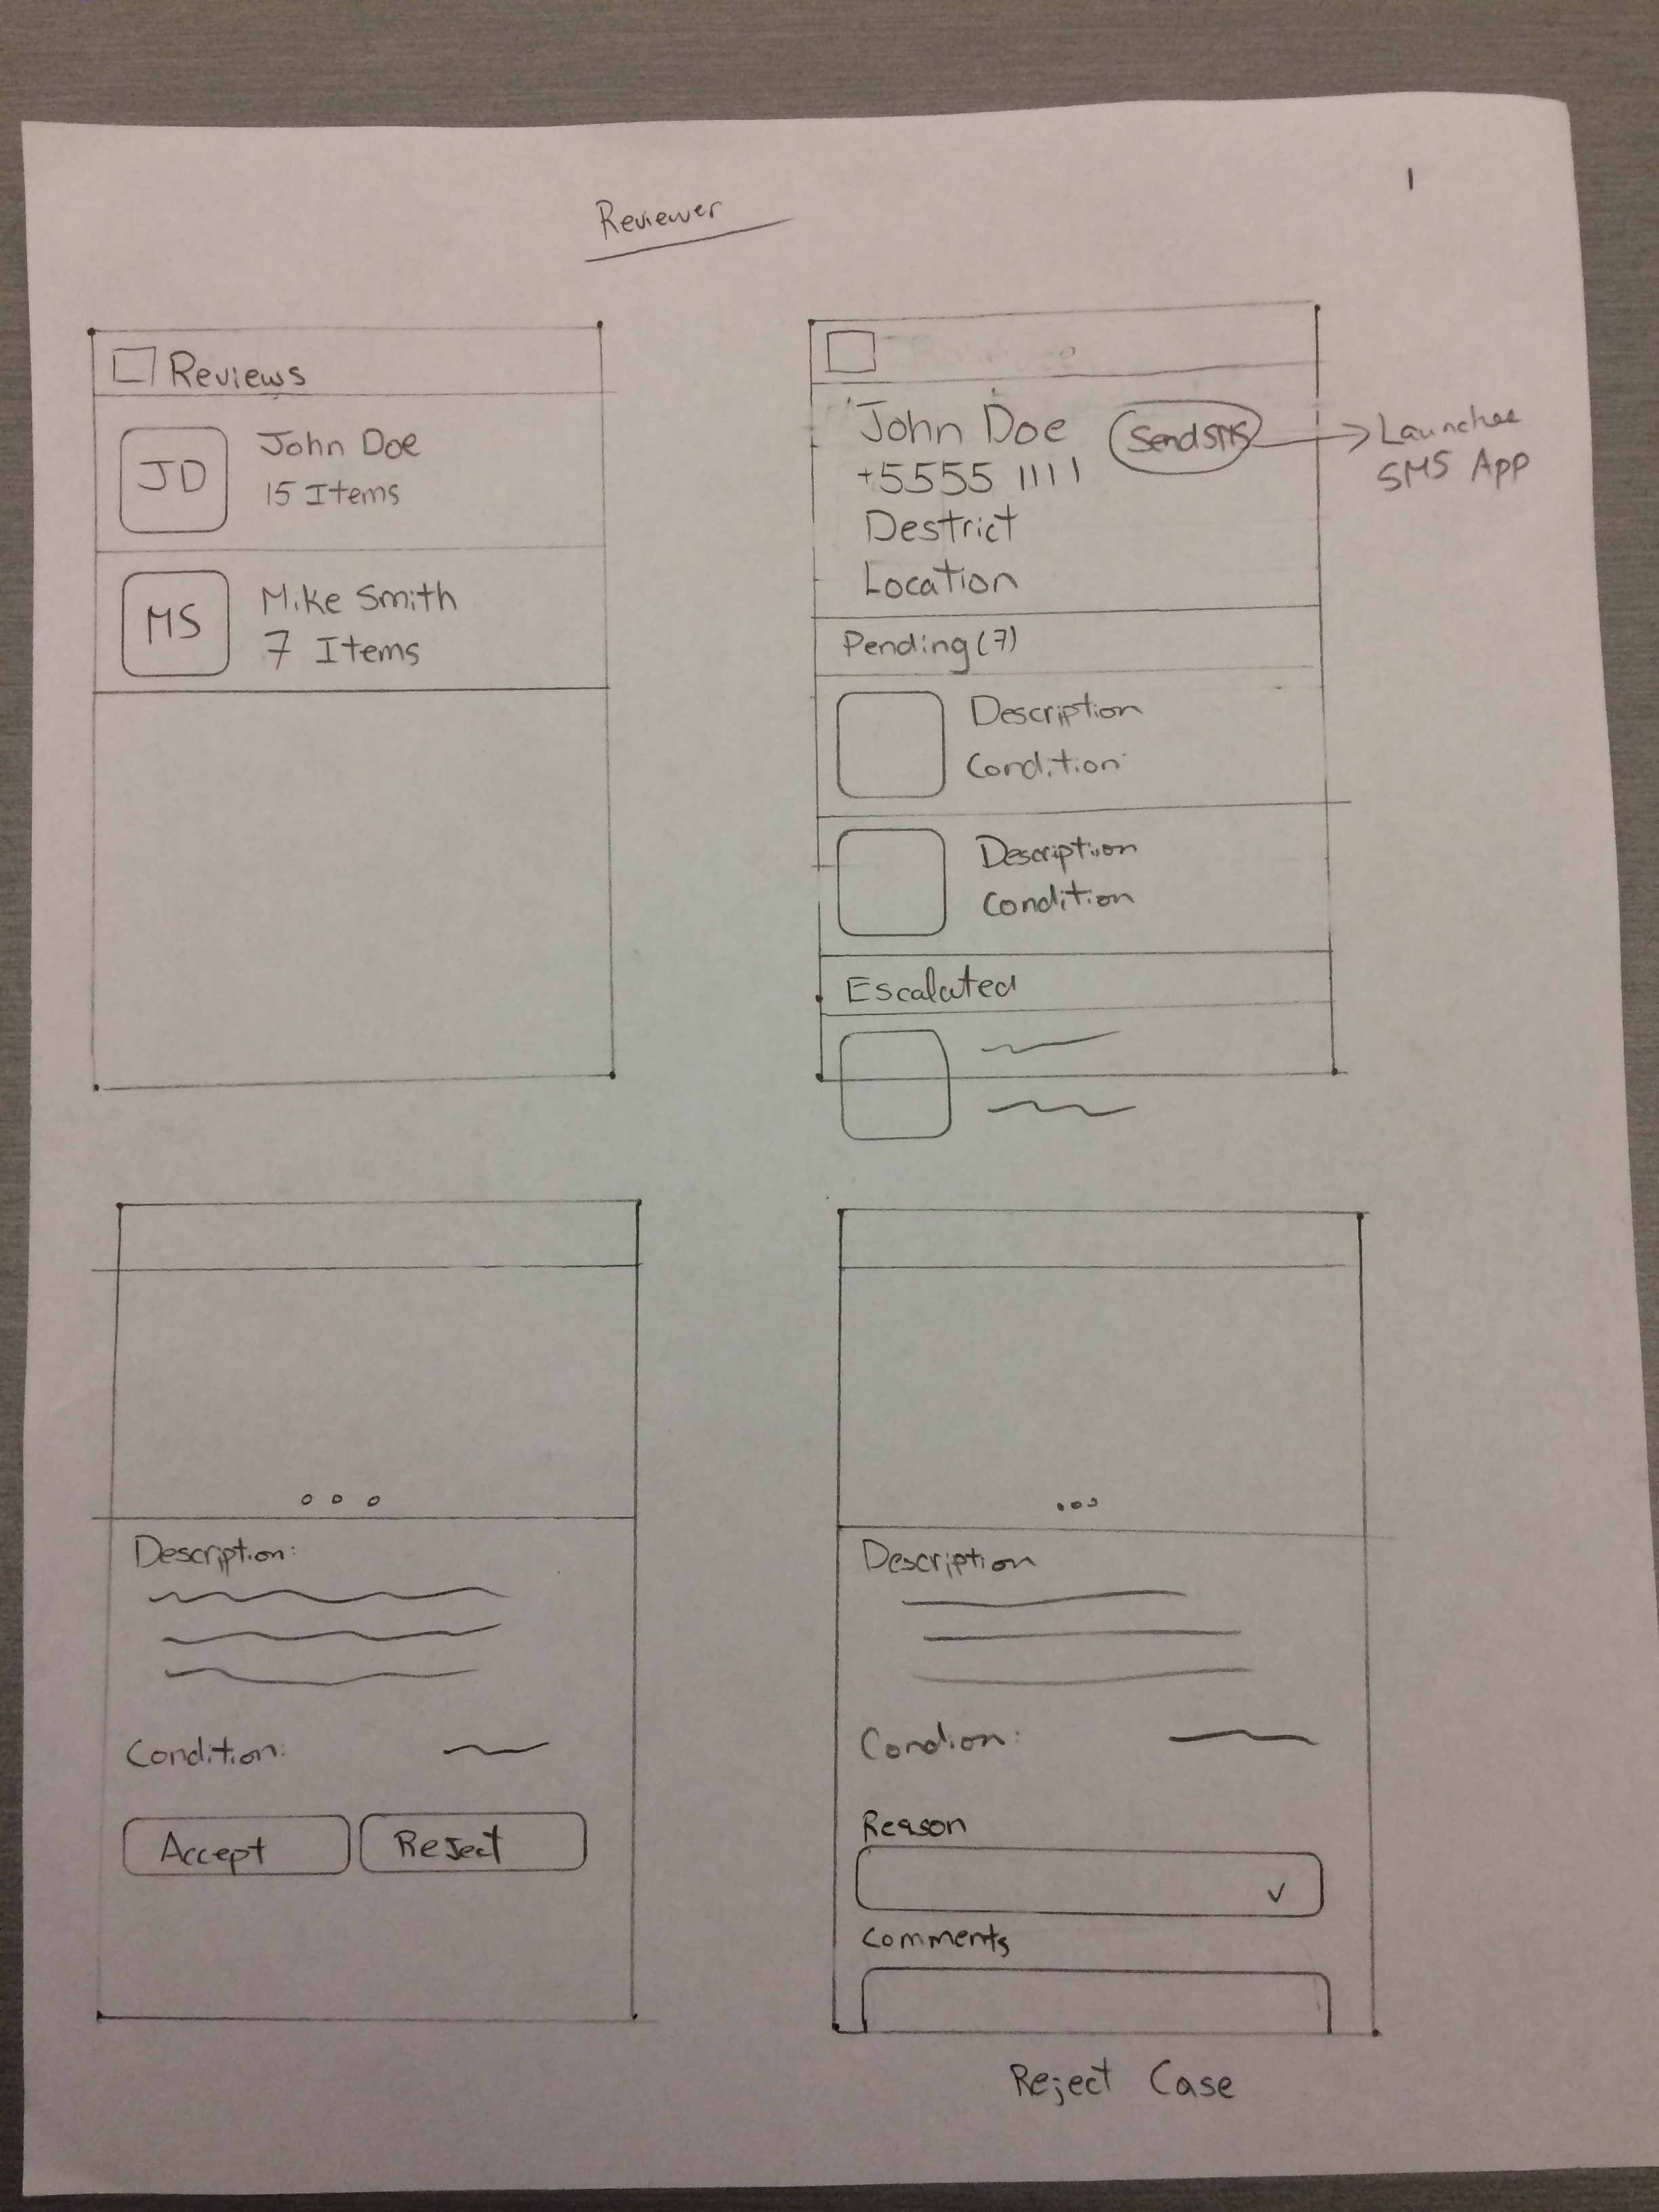 1
Reviewer
Reviews
JD
John Doe
15 Items
MS
Mike Smith
7 Items
John Doe
Send SMS
Launches
SMS App
+5555 1111
Destrict
Location
Pending (7)
Description
Condition
Description
Condition
Escalated
Description:
Condition:
Accept
Reject
Description
Condion:
Reason
Comments
Reject Case